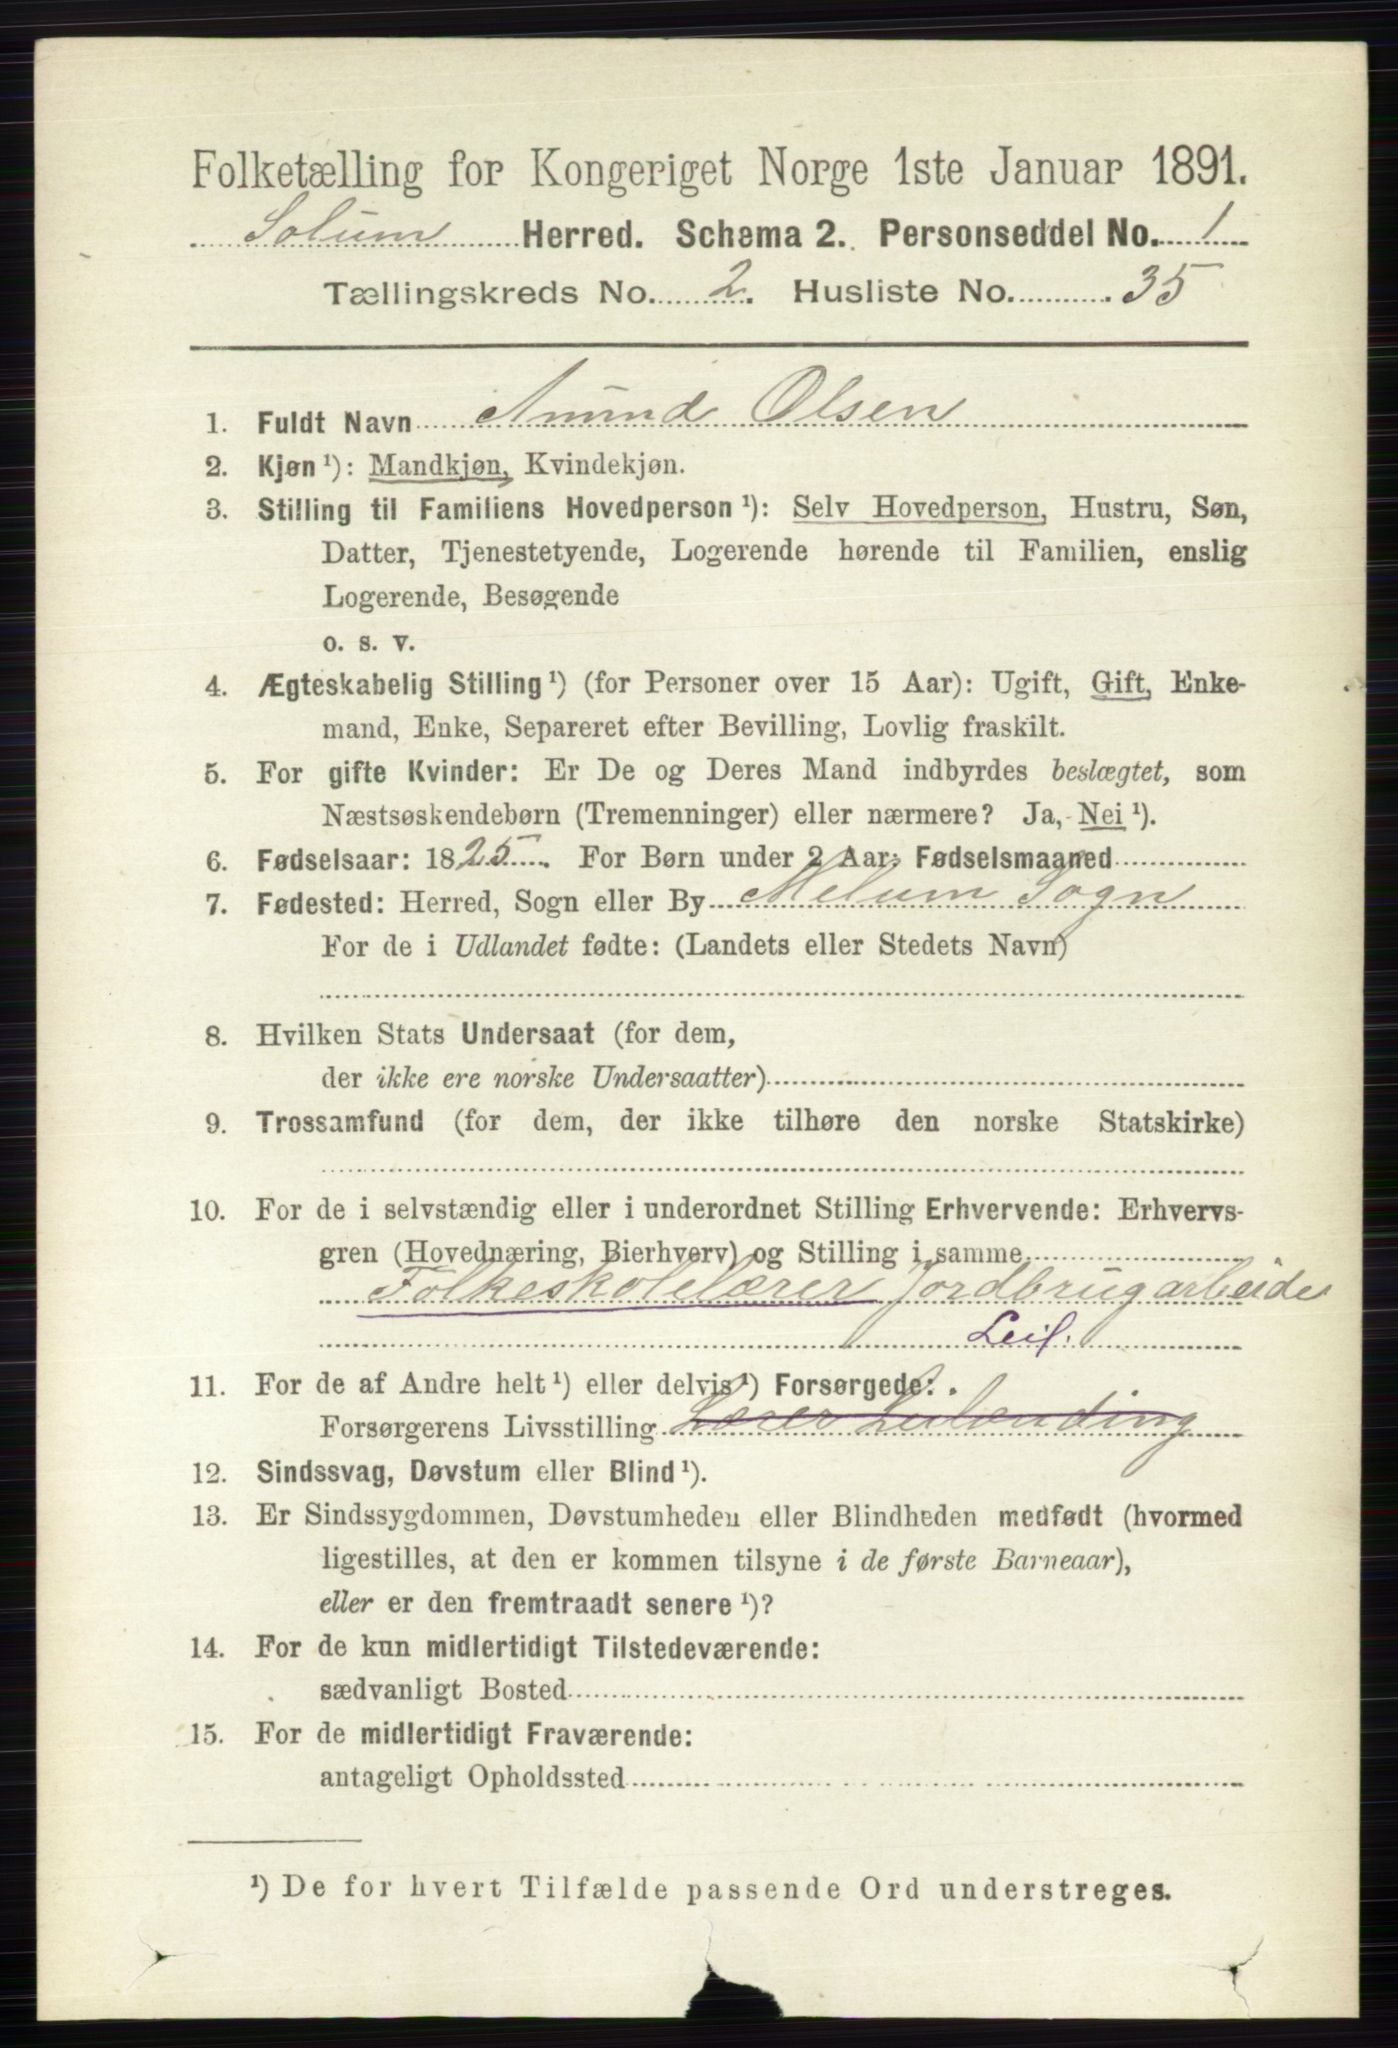 Folketælling for Kongeriget Norge 1ste Januar 1891.
Solum Herred. Schema 2. Personseddel No. 1
Tællingskreds No. 2. Husliste No. 35
1. Fuldt Navn Amund Olsen
2. Kjøn ¹): Mandkjøn, Kvindekjøn.
3. Stilling til Familiens Hovedperson ¹): Selv Hovedperson, Hustru, Søn,
Datter, Tjenestetyende, Logerende hørende til Familien, enslig
Logerende, Besøgende
o. s. v.
4. Ægteskabelig Stilling ¹) (for Personer over 15 Aar): Ugift, Gift, Enke-
mand, Enke, Separeret efter Bevilling, Lovlig fraskilt.
5. For gifte Kvinder: Er De og Deres Mand indbyrdes beslægtet, som
Næstsøskendebørn (Tremenninger) eller nærmere? Ja, Nei ¹).
6. Fødselsaar: 1825. For Børn under 2 Aar: Fødselsmaaned
7. Fødested: Herred, Sogn eller By Melum Sogn
For de i Udlandet fødte: (Landets eller Stedets Navn)
8. Hvilken Stats Undersaat (for dem,
der ikke ere norske Undersaatter)
9. Trossamfund (for dem, der ikke tilhøre den norske Statskirke)
10. For de i selvstændig eller i underordnet Stilling Erhvervende: Erhvervs-
gren (Hovednæring, Bierhverv) og Stilling i samme
Folkeskolelærer Jordbrugarbeide
Leil.
11. For de af Andre helt ¹) eller delvis ¹) Forsørgede:
Forsørgerens Livsstilling Lærer Leilænding
12. Sindssvag, Døvstum eller Blind ¹).
13. Er Sindssygdommen, Døvstumheden eller Blindheden medfødt (hvormed
ligestilles, at den er kommen tilsyne i de første Barneaar),
eller er den fremtraadt senere ¹)?
14. For de kun midlertidigt Tilstedeværende:
sædvanligt Bosted
15. For de midlertidigt Fraværende:
antageligt Opholdssted
¹) De for hvert Tilfælde passende Ord understreges.